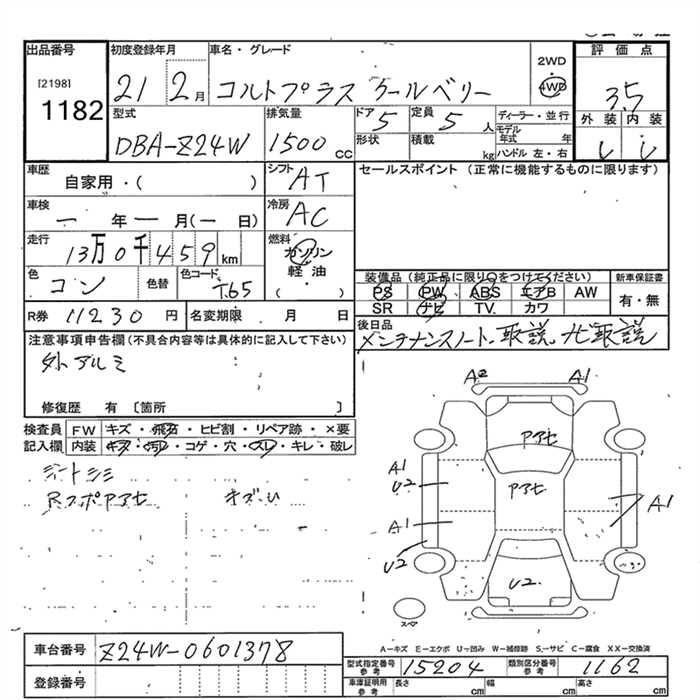 出品番号 初度登録年月 車名・グレード 評価点
[2198] 1182 21 2月 コルトプラス クールベリー 2WD 4WD 3.5
型式 排気量 ドア 定員 ディーラー・並行 外装 内装
DBA-Z24W 1500cc 5 5人 モデル年式 年
形状 積載 kg ハンドル 左・右
車歴 シフト セールスポイント (正常に機能するものに限ります)
自家用・( ) AT
車検 冷房
一年一月(一日) AC
走行 燃料
13万0千459km ガソリン
軽油
( )
色 色替 色コード 装備品 (純正品に限り○をつけてください) 新車保証書
コン T65 PS PW ABS エアB AW 有・無
SR ナビ TV カワ
R券 11230円 名変期限 月 日 後日品
メンテナンスノート、取説、ナビ取説
注意事項申告欄(不具合内容等は具体的に記入して下さい)
外アルミ
修復歴 有 〔箇所 〕
検査員 FW キズ・飛石・ヒビ割・リペア跡・×要
記入欄 内装 キズ・汚れ・コゲ・穴・スレ・キレ・破レ
シートシミ
RスポPアセ キズU
A2 A1
Pアセ
Pアセ
A1
U2
A1
A1
U2
U2
スマ
A-キズ E-エクボ U-凹み W-補修跡 S-サビ C-腐食 XX-交換済
車台番号 Z24W-0601378
登録番号
型式指定番号 参考 15204 類別区分番号 参考 1162
車庫証明用 参考 長さ cm 幅 cm 高さ cm